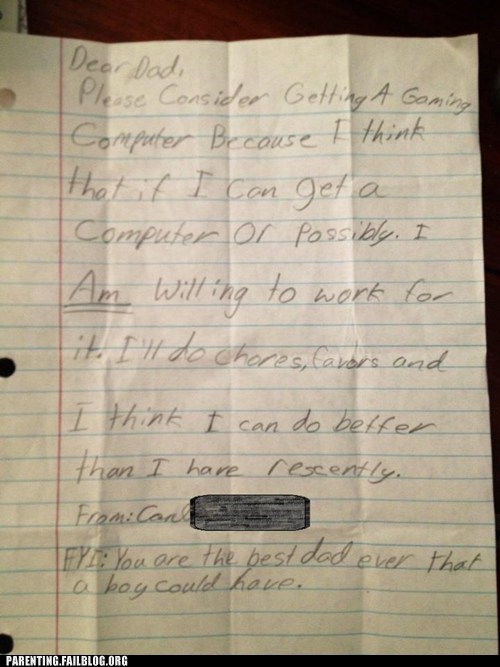 Dear Dad,
Please Consider Getting A Gaming
Computer Because I think
that if I can get a
Computer Or Possibly. I
Am Willing to work for
it. I'll do chores, favors and
I think I can do better
than I have rescently.
From:
FYI: You are the best dad ever that
a boy could have.
PARENTING.FAILBLOG.ORG